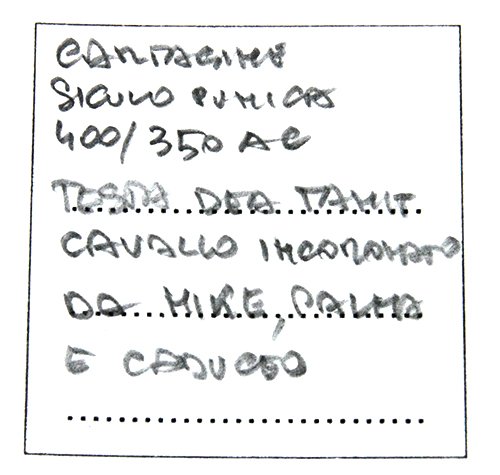 CARTAGINE
SICULO PUNICAS
400/350 AC
TESTA DEA TANIT
CAVALLO INCORONATO
DA NIKE, PALMA
E CADUCEO